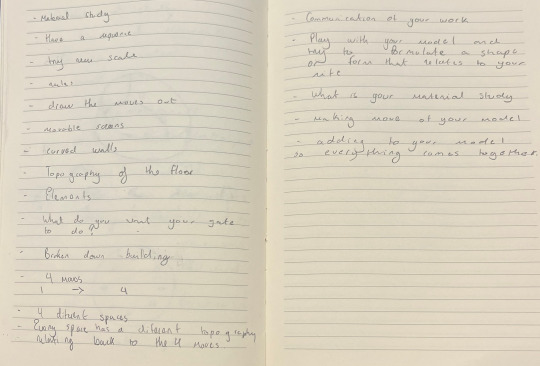 - Material study
- Have a
- try new scale
- rules
- draw the moves out
- movable screens
- curved walls
- Topography of the floor
- Elements
- What do you want your gate
to do?
- Broken down building
- 4 moves
1 -> 4
- 4 difrent spaces
- Every space has a diferent topography
relating back to the 4 moves
- Communication of your work
- Play with your model and
try to formulate a shape
or form that relates to your
- What is your material study
- Making move of your model
- adding to your model
so everything comes together.